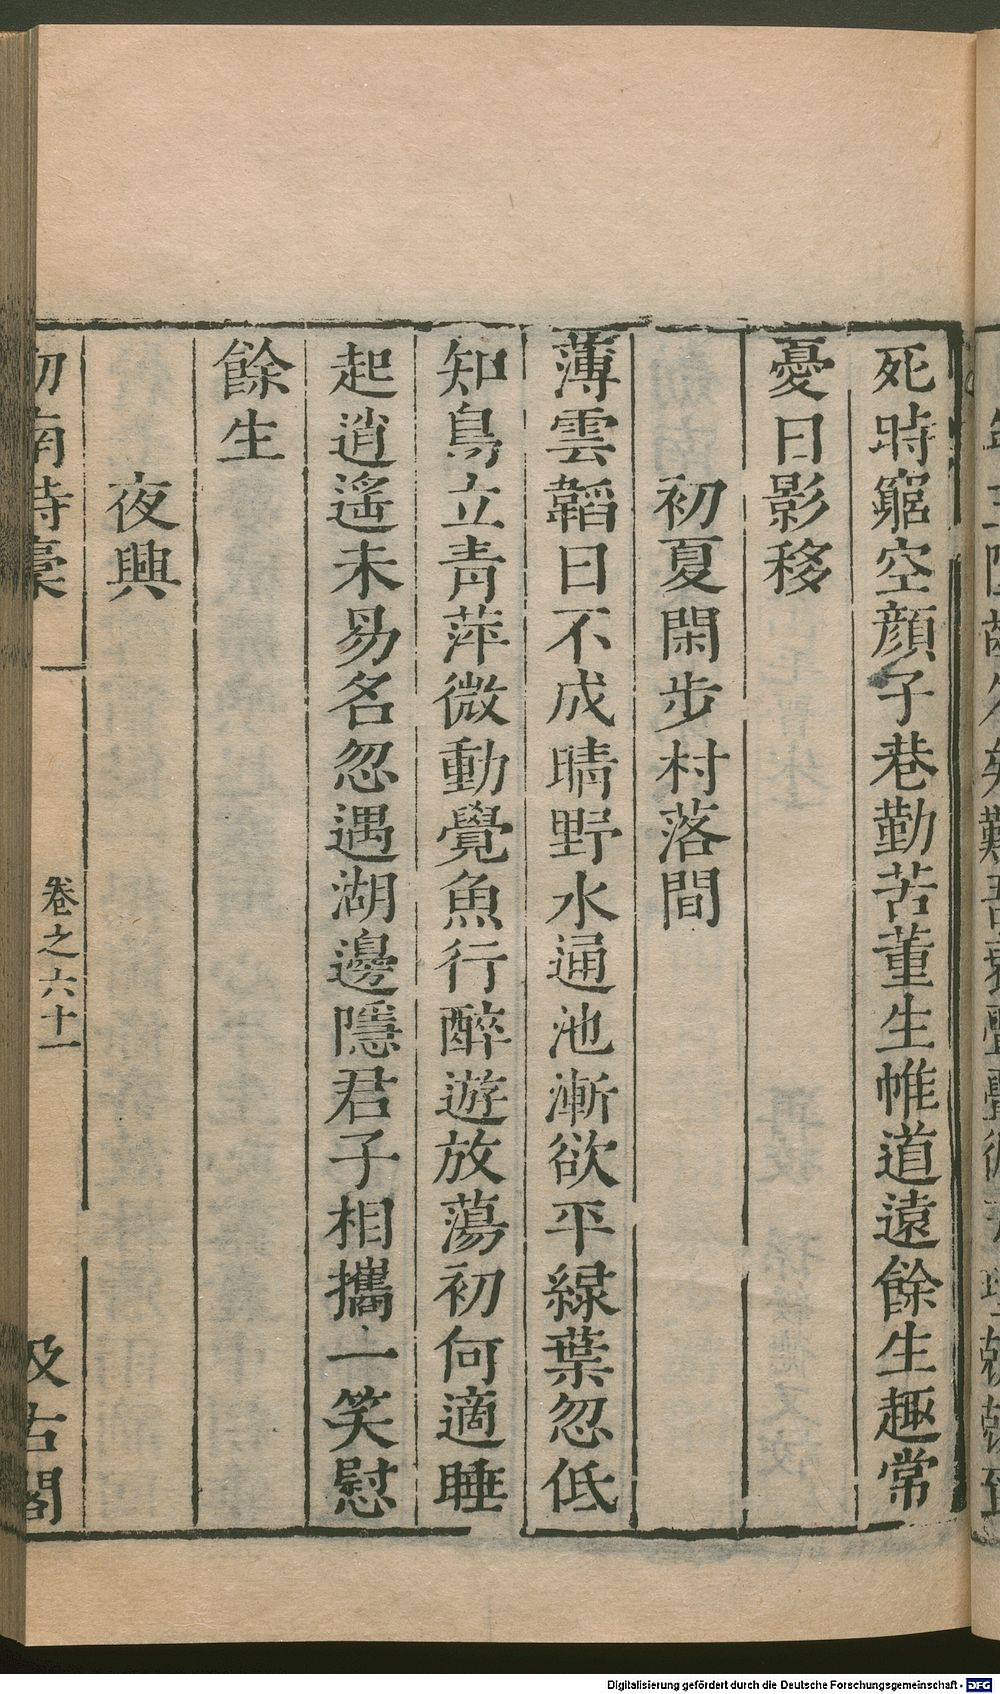 死時窮空顔子巷勤苦董生帷道遠餘生趣常
憂日影移
初夏閑步村落間
薄雲韜日不成晴野水通池漸欲平綠葉忽低
知鳥立青萍微動覺魚行醉遊放蕩初何適睡
起逍遙未易名忽遇湖邊隱君子相攜一笑慰
餘生
夜興
卷之六十一
汲古閣
Digitalisierung gefördert durch die Deutsche Forschungsgemeinschaft - DFG